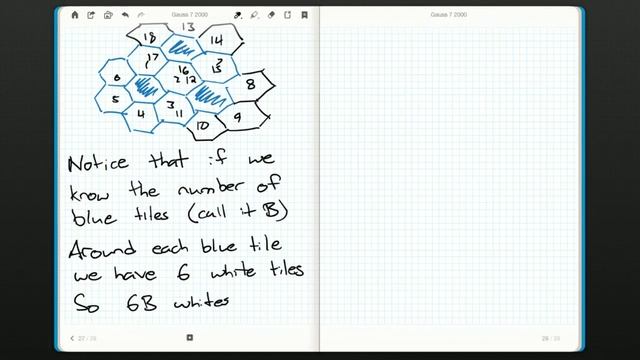 Gauss 7 2000
Gauss 7 2000
13
18
14
17
16
2
15
6
2 12
8
5
4
3
11
10
9
Notice that if we
know the number of
blue tiles (call it B)
Around each blue tile
we have 6 white tiles
So 6B whites
27 / 28
28 / 28